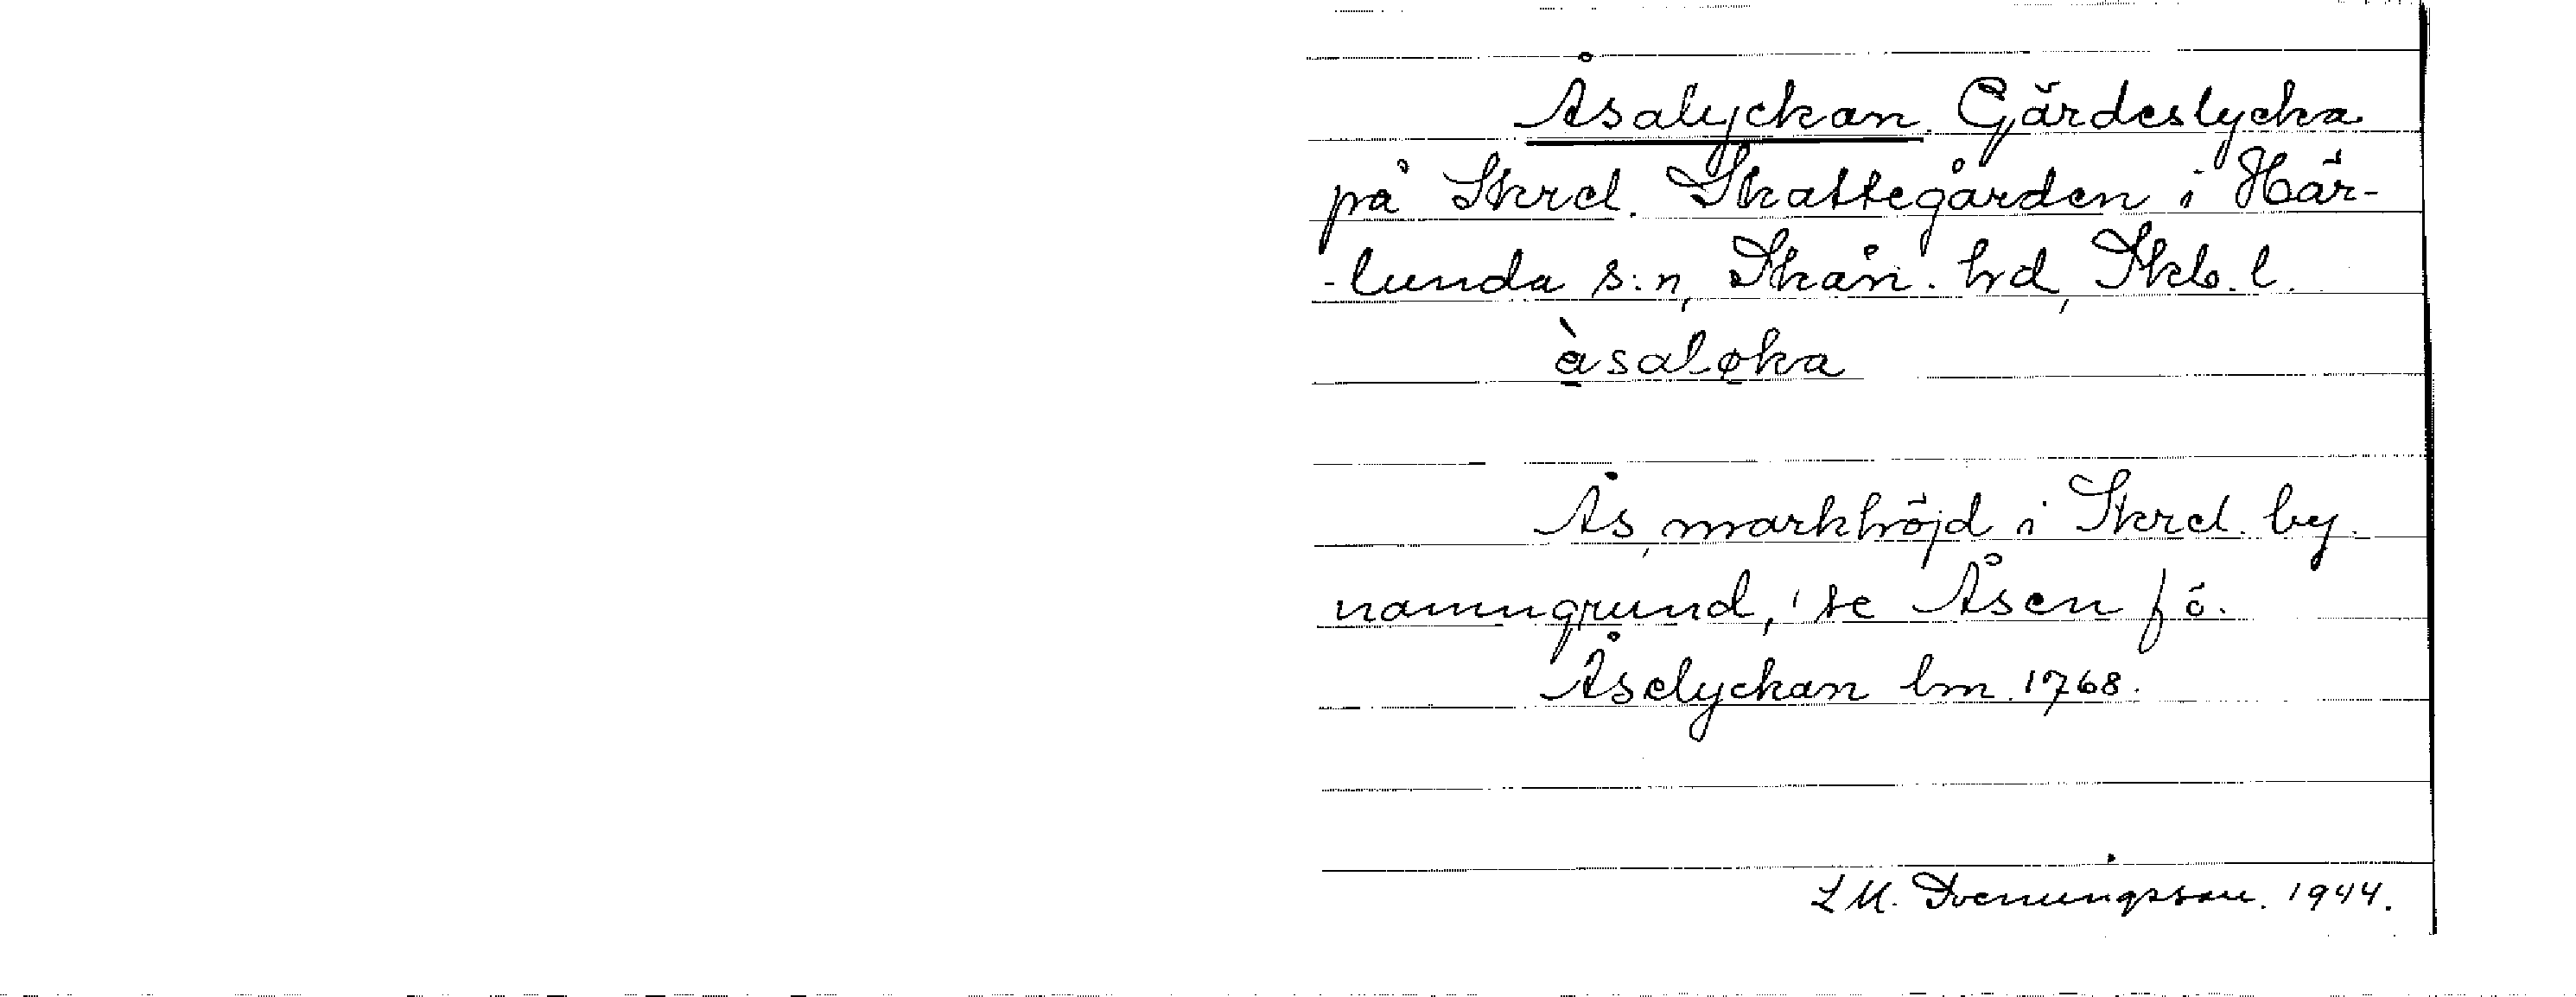 Åsalyckan. Gärdeslycka
på Skrd. Skattegården i Här-
-lunda s:n, Skån. hd, Skb. l.
àsaløka
Ås, markhöjd i Skrd. by.
namngrund, se Åsen fö.
Åselyckan lm. 1768.
L M. Svenungsson. 1944.